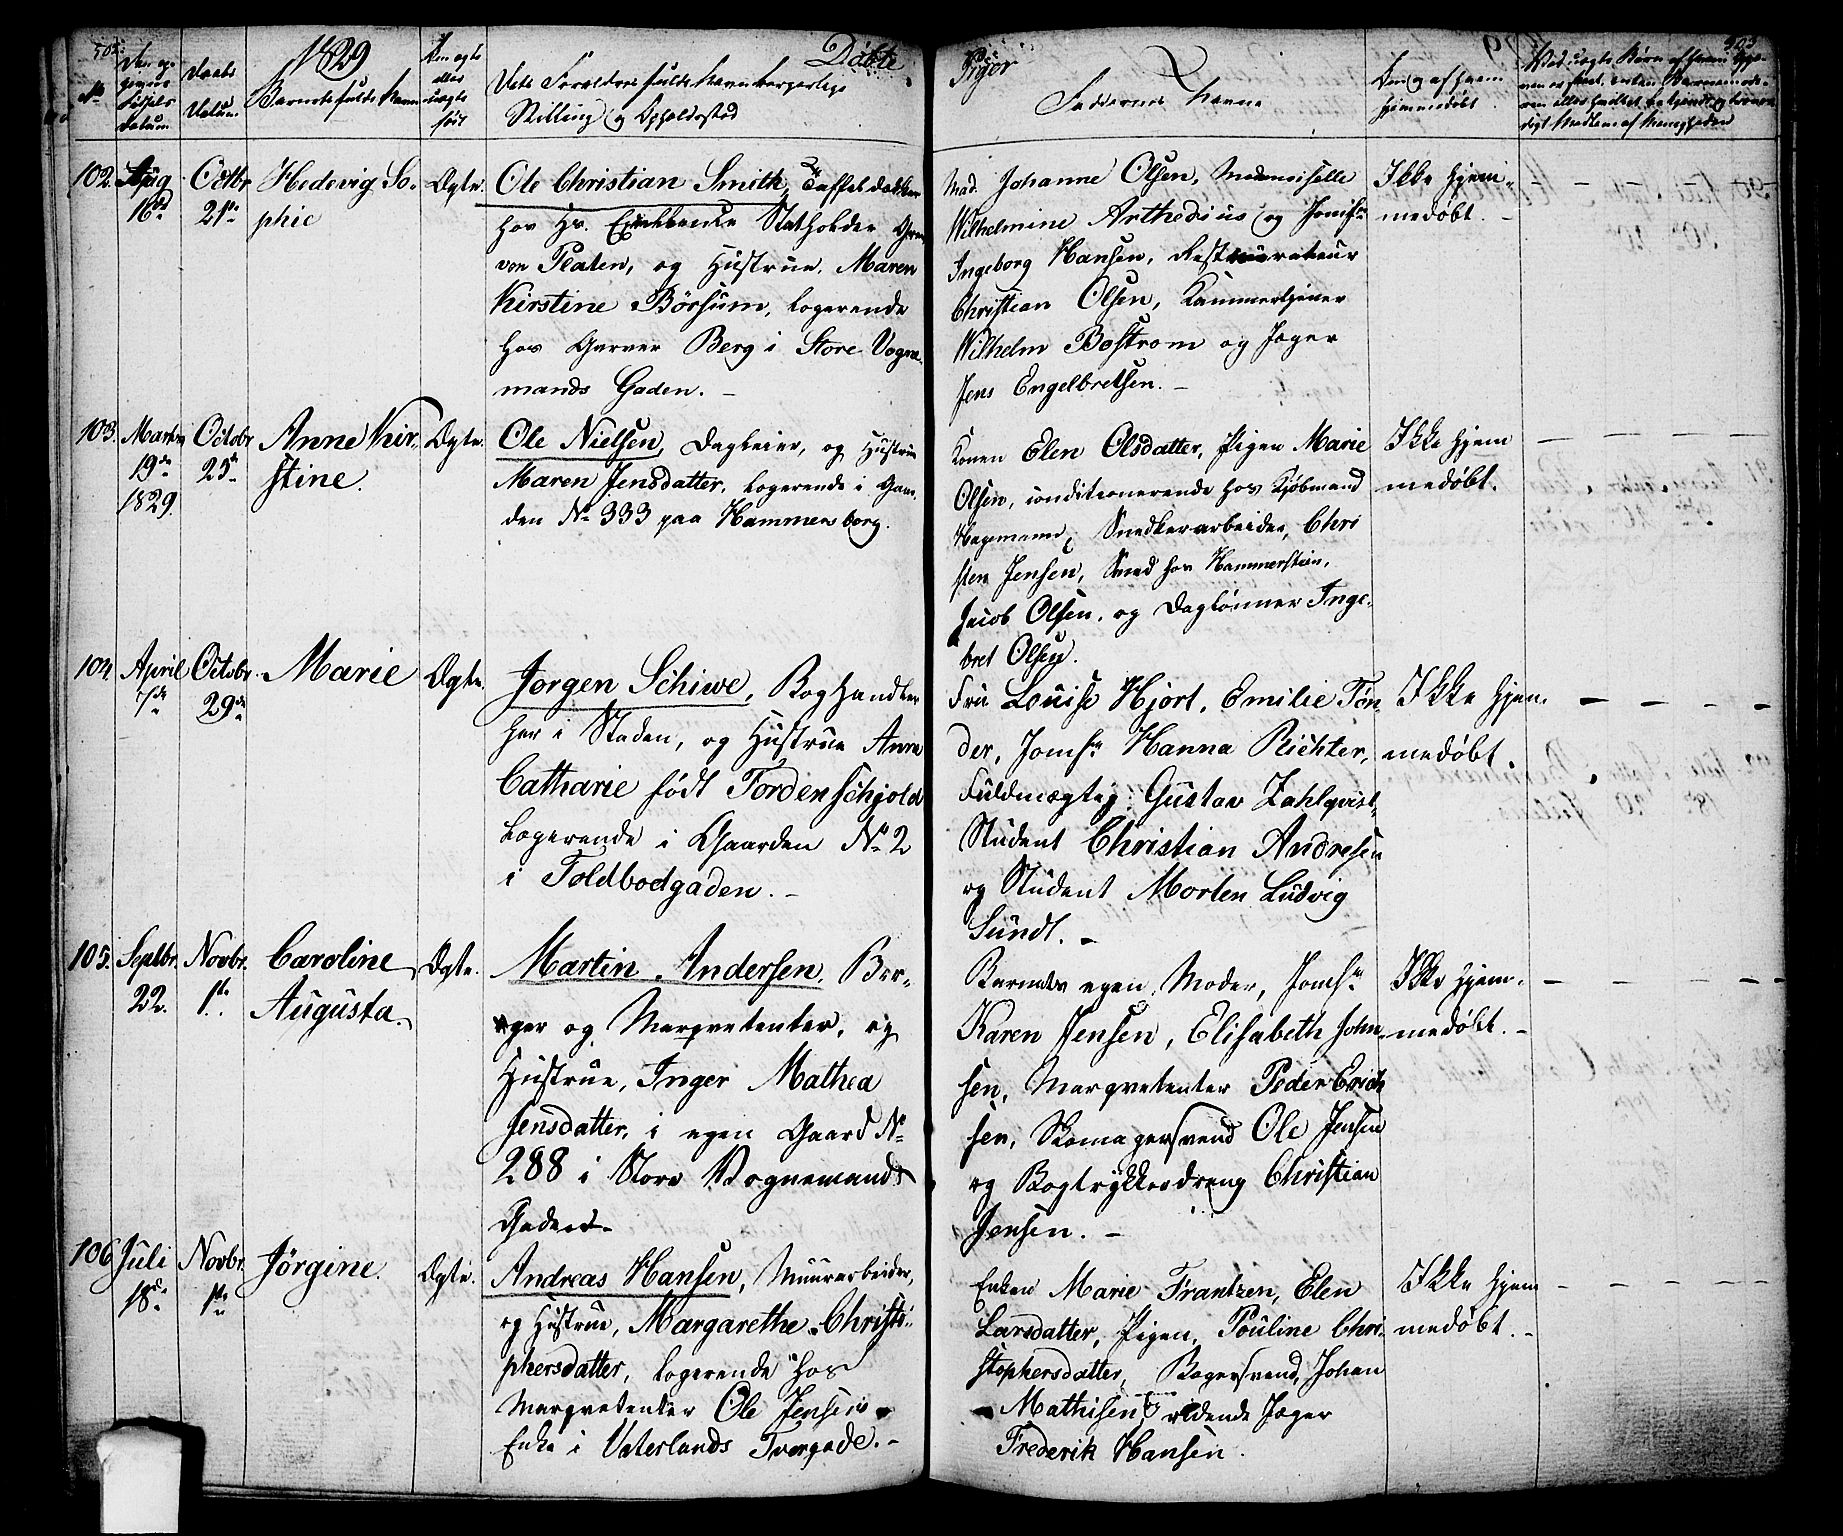 1829
Døbte Piger
503
No
Den opgivne Fødsels Datum
Daabs Datum
Barnets fulde Navn
Om ægte eller uægte født
Vede Forældres fulde Navn borgerlige
Stilling og Opholdssted
Faddernes Navne
Om og af hvem
hjemmedøbt
102. Aug 16de
Octbr 21de
Hedevig So-
phie
Ægte.
Ole Christian Smith, Taffeldækker
hos Hr. Statholder Grev
von Platen, og Hustrue, Maren
Kirstine Børsum, logerende
hos Garver Berg i Store Vogn-
mands Gaden. –
Mad. Johanne Olsen, Mademoiselle
Wilhelmine Arthedius og Jomfr
Ingeborg Hansen, Restaurateur
Christian Olsen, Kammertjener
Wilhelm Bostrom og Jæger
Jens Engelbretsen. –
Ikke hjem-
medøbt. –
103. Marts 19de 1829.
Octobr 25de
Anne Kir-
stine.
Ægte.
Ole Nielsen, Dagleier, og Hustrue
Maren Jensdatter, logerende i Gaar-
den No 333 paa Hammersborg.
Konen Elen Olsdatter, Pigen Marie
Olsen, conditionerende hos Kjøbmand
Hagemann, Snedkerarbeider, Chri
sten Jensen, Smed hos Hammerstein,
Jacob Olsen, og Daglønner Inge-
bret Olsen.
Ikke hjem
medøbt.
104. April 7de
Octobr. 29de
Marie
Ægte.
Jørgen Schiwe, Boghandler
her i Staden, og Hustrue Anne
Catharie født Tordenschjold
logerende i Gaarden No 2
i Toldbodgaden. –
Fru Louise Hjort, Emilie Tøn
der, Jomfr Hanna Richter,
Fuldmægtig Gustav Zahlqvist,
Student Christian Andresen
og Student Morten Ludvig
Sundt. –
Ikke hjem-
medøbt.
105. Septbr. 22.
Novbr. 1te
Caroline
Augusta.
Ægte.
Martin Andersen, Bor-
ger og Marqvetenter, og
Hustrue, Inger Mathea
Jensdatter, i egen Gaard No
288 i Store Vognmands
Gaden. –
Barnets egen Moder, Jomfr
Karen Jensen, Elisabeth John-
sen, Marqvetenter Peder Erich
sen, Skomagersvend Ole Jensen
og Bogtrykkerdreng Christian
Jensen. –
Ikke hjem-
medøbt. –
106 Juli 18de
Novbr. 1te
Jørgine.
Ægte.
Andreas Hansen, Muurarbeider,
og Hustrue, Margarethe Christi-
phersdatter, logerende hos
Marqvetenter Ole Jensens
Enke i Vaterlands Tvergade. –
Enken Marie Frantzen, Elen
Larsdatter, Pigen, Pouline Chri-
stophersdatter, Bagersvend, Johan
Mathisen, og ridende Jæger
Frederik Hansen.
Ikke hjem
medøbt. –